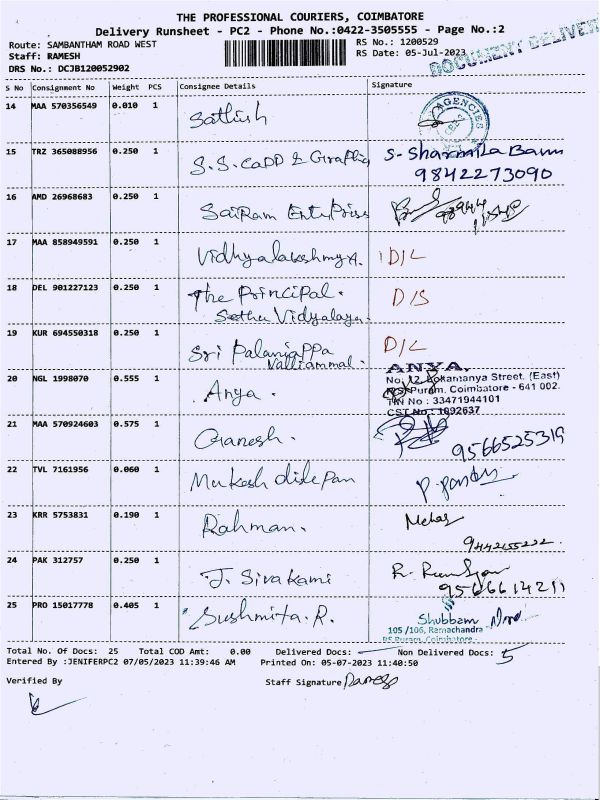 THE PROFESSIONAL COURIERS, COIMBATORE
Delivery Runsheet - PC2 - Phone No.:0422-3505555 - Page No.:2
Route: SAMBANTHAM ROAD WEST
RS No.: 1200529
Staff: RAMESH
RS Date: 05-Jul-2023
DOCUMENT DELIVER
DRS No.: DCJB120052902
S No Consignment No Weight PCS Consignee Details Signature
14 MAA 570356549 0.010 1 Sathish
AGENCIES
15 TRZ 365088956 0.250 1 S.S. CaDD & Graphic S. Sharmila Banu
9842273090
16 AMD 26968683 0.250 1 SaiRam Enterprises
17 MAA 858949591 0.250 1 Vidhyalakshmy A. D/L
18 DEL 901227123 0.250 1 The Principal. D/S
Sethu Vidyalaya.
19 KUR 694550318 0.250 1 Sri Palaniappa D/L
Valliammal.
20 NGL 1998070 0.555 1 Anya.
ANYA,
No. 12, Street, (East)
Puram, Coimbatore - 641 002.
TIN No : 33471944101
CST No : 1092637
21 MAA 570924603 0.575 1 Ganesh. 9566525319
22 TVL 7161956 0.060 1 Mukesh dilepan P. Pandy
23 KRR 5753831 0.190 1 Rahman.
9442655222.
24 PAK 312757 0.250 1 J. Sivakami
9566614211
25 PRO 15017778 0.405 1 Sushmita. R.
Shubham
105 /106, Ramachandra
RS Puram, Coimbatore
Total No. Of Docs: 25 Total COD Amt: 0.00 Delivered Docs: Non Delivered Docs: 5
Entered By :JENIFERPC2 07/05/2023 11:39:46 AM Printed On: 05-07-2023 11:40:50
Verified By Staff Signature Ramesh